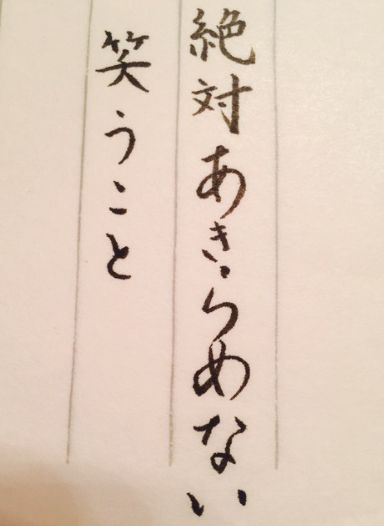 絶対あきらめない
笑うこと